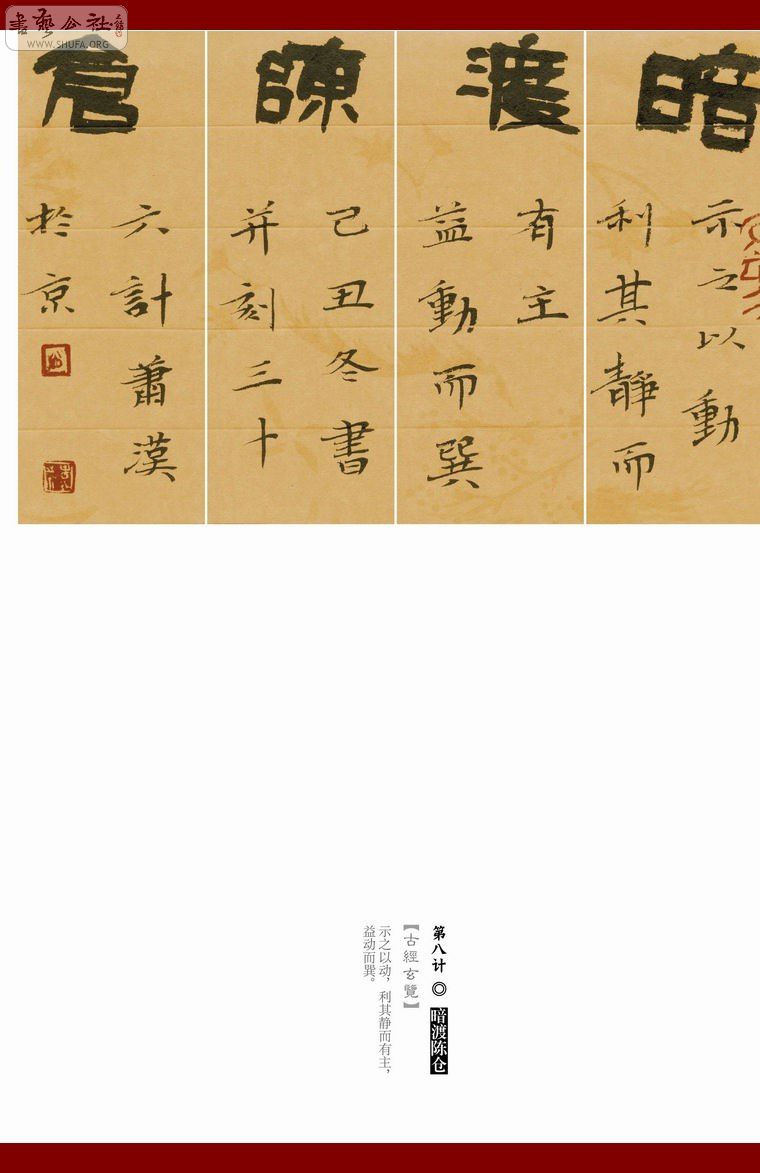 書藝公社
WWW.SHUFA.ORG
暗渡陳倉
示之以動
利其靜而
有主
益動而巽
己丑冬書
并刻三十
六計蕭漢
於京
第八计◎暗渡陈仓
【古經玄覽】
示之以动，利其静而有主，
益动而巽。